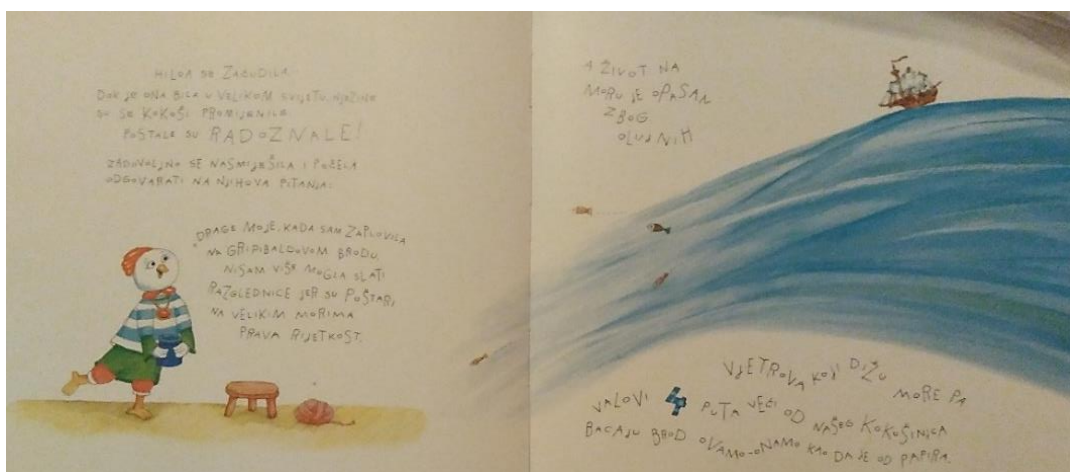 HILDA SE ZAČUDILA.
DOK JE ONA BILA U VELIKOM SVIJETU, NJEZINE
SU SE KOKOŠI PROMIJENILE.
POSTALE SU RADOZNALE!
ZADOVOLJNO SE NASMIJEŠILA I POČELA
ODGOVARATI NA NJIHOVA PITANJA:
"DRAGE MOJE, KADA SAM ZAPLOVILA
NA GRIPIBALDOVOM BRODU,
NISAM VIŠE MOGLA SLATI
RAZGLEDNICE JER SU POŠTARI
NA VELIKIM MORIMA
PRAVA RIJETKOST.
A ŽIVOT NA
MORU JE OPASAN
ZBOG
OLUJNIH
VJETROVA KOJI DIŽU MORE PA
VALOVI 4 PUTA VEĆI OD NAŠEG KOKOŠINJCA
BACAJU BROD OVAMO-ONAMO KAO DA JE OD PAPIRA.